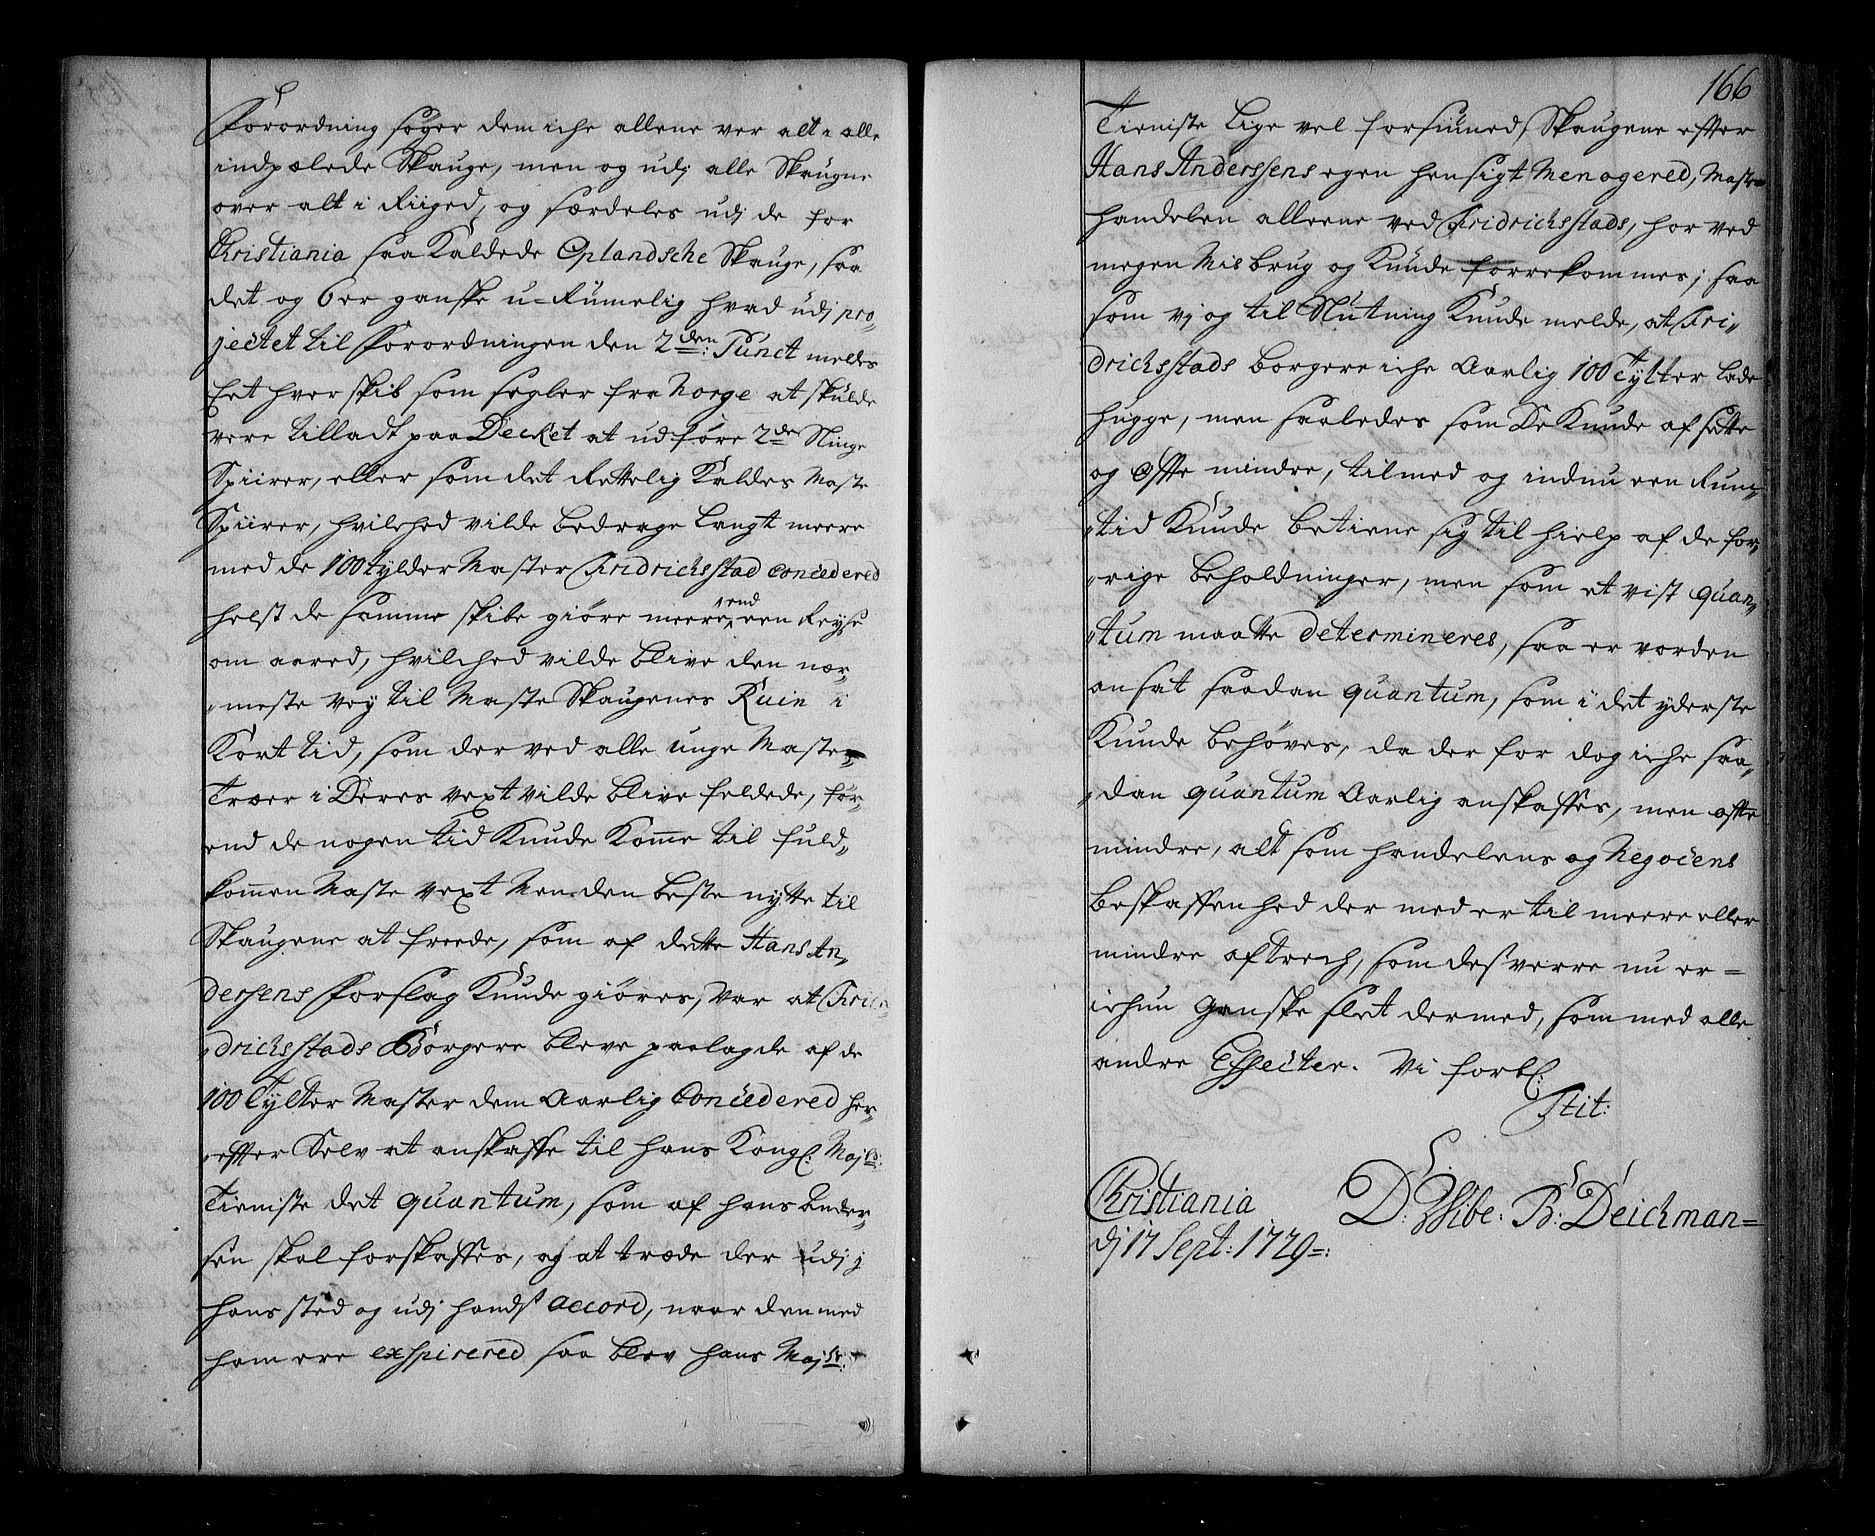 Forordning søger dem iche allene ver alt i alle
indpælede Skauge, men og udj alle Skaugne
over alt i Riiged, og særdeles udj de for
Christiania saa Kaldede Oplandsche Skauge, saa
det og er ganske u-Rümelig hvad udj pro„
jectet til Forordningen den 2den: Punct meldes
Eet hver skib som segler fra Norge at skulde
vere tilladt paa Decket at udføre 2de Slinge
Spiirer, eller som det Rettelig Kaldes Maste
Spiirer, hvilched vilde bedrage langt meere
med de 100 tylder Master Fridrichsstad concedered
helst de samme skibe giøre meere end een Reyse
om aared, hvilched vilde blive den nær„
„meste vey til Maste Skaugenes Ruin i
Kort tid, som der ved alle unge Maste„
Træer i Deres vext vilde blive feldede, før„
end de nogen tid Kunde Komme til fuld„
kommen Maste vext Men den beste nytte til
Skaugene at freede, som af dette Hans An„
dersens Forslag Kunde giøres, var at Frie„
„drichsstads Borgere bleve paalagde af de
100 Tylter Master dem Aarlig Concedered her„
„effter Selv at anskaffe til hans Kongl: Mayts:
Tieniste det quantum, som af hans Ander„
sen skal forskaffes, og at træde der udj j
hans sted og udj hands accord, naar den med
ham ere exspirered saa blev hans Mayts:
166
Tieniste lige vel forsiuned, Skaugene efter
Hans Anderssens egen hensigt Menagered, Maste
handelen alleene ved Fridrichsstads, hor ved
megen Misbrug og Kunde forrekommes; saa
som vj og til Slutning Kunde melde, at Fri„
drichsstads borgere iche Aarlig 100 Tylter lade
hugge, men saaledes som De Kunde afsætte
og Offte mindre, tilmed og indnu een Rum„
„tid Kunde betiene sig til hielp af de for„
„rige beholdninger, men som et vist quan„
„tum maatte determineres, saa er vorden
ansat saadan quantum, som i det yderste
Kunde behøves, da der for dog iche saa„
„dan quantum Aarlig anskaffes, men offte
mindre, alt som handelens og Negociens
beskaffenhed der med er til meere eller
mindre aftrech, som desverre nu er =
ichun Ganske slet dermed, som med alle
andre Effecter. Vi forbl:
Tit:
Christiania
dj 17 Sept: 1729=:
D: Vibe: B: Deichman=